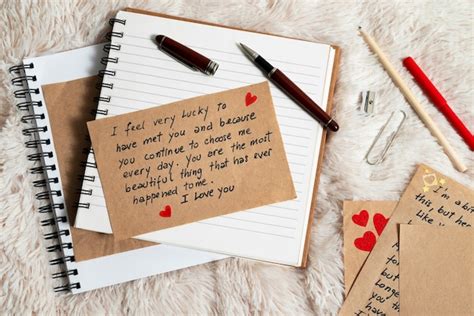 I feel very lucky to
have met you and because
you continue to choose me
every day. You are the most
beautiful thing that has ever
happened to me.
I love you
I'm a bi
this, but her
Like